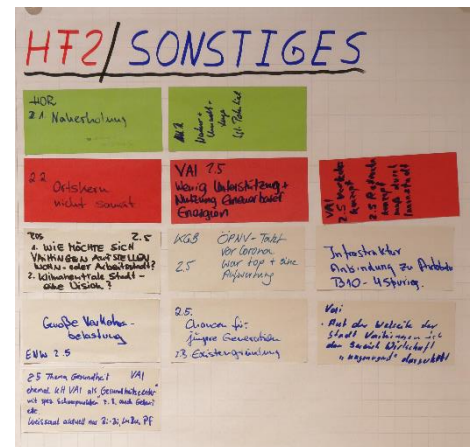 HF2/SONSTIGES
HOR
2.1 Naherholung
2.2
Ortskern
nicht saniert
VAI 2.5
Wenig Unterstützung +
Nutzung Erneuerbarer
Energien
VAI
2.5
2.5
ROS 2.5
1. WIE MÖCHTE SICH
VAIHINGEN AUFSTELLEN
WOHN- oder Arbeitsstadt?
2. Klimaneutrale Stadt -
eine Vision?
KGB ÖPNV-Takt
vor Corona
2.5 war top + eine
Aufwertung
Infrastruktur
Anbindung zu Autobahn
B10 - 4spurig.
Große Verkehrs-
belastung
ENW 2.5
2.5.
Chancen für
jüngere Generation
z.B Existenzgründung
Vai
· Auf der Webseite der
Stadt Vaihingen ist
der Bereich Wirtschaft
"ungenügend" dargestellt
2.5 Thema Gesundheit VAI
ehemal. KH VAI als "Gesundheitszentrum"
mit Schwerpunkten z.B. auch Geburt
etc